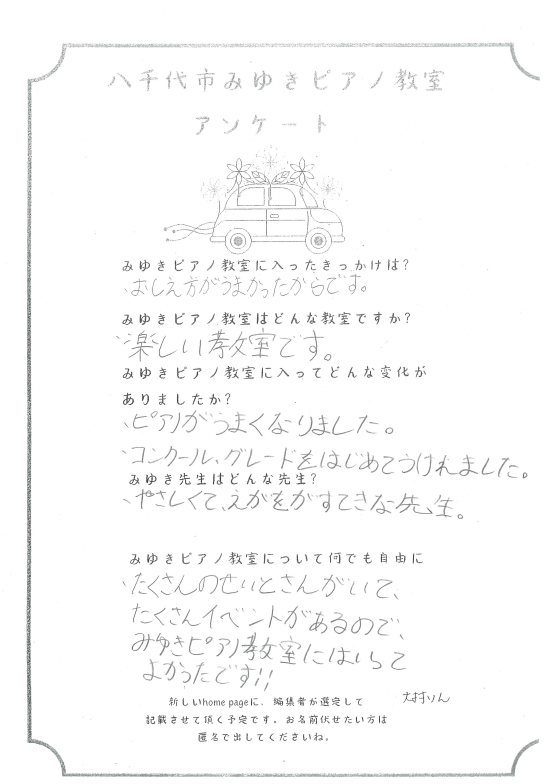 八千代市みゆきピアノ教室
アンケート
みゆきピアノ教室に入ったきっかけは?
・おしえ方がうまかったからです。
みゆきピアノ教室はどんな教室ですか?
・楽しい教室です。
みゆきピアノ教室に入ってどんな変化が
ありましたか?
・ピアノがうまくなりました。
・コンクール、グレードをはじめてうけれました。
みゆき先生はどんな先生?
・やさしくて、えがをがすてきな先生。
みゆきピアノ教室について何でも自由に
・たくさんのせいとさんがいて、
たくさんイベントがあるので、
みゆきピアノ教室にはいって
よかったです!!
新しいhome pageに、編集者が選定して
記載させて頂く予定です。お名前伏せたい方は
匿名で出してくださいね。